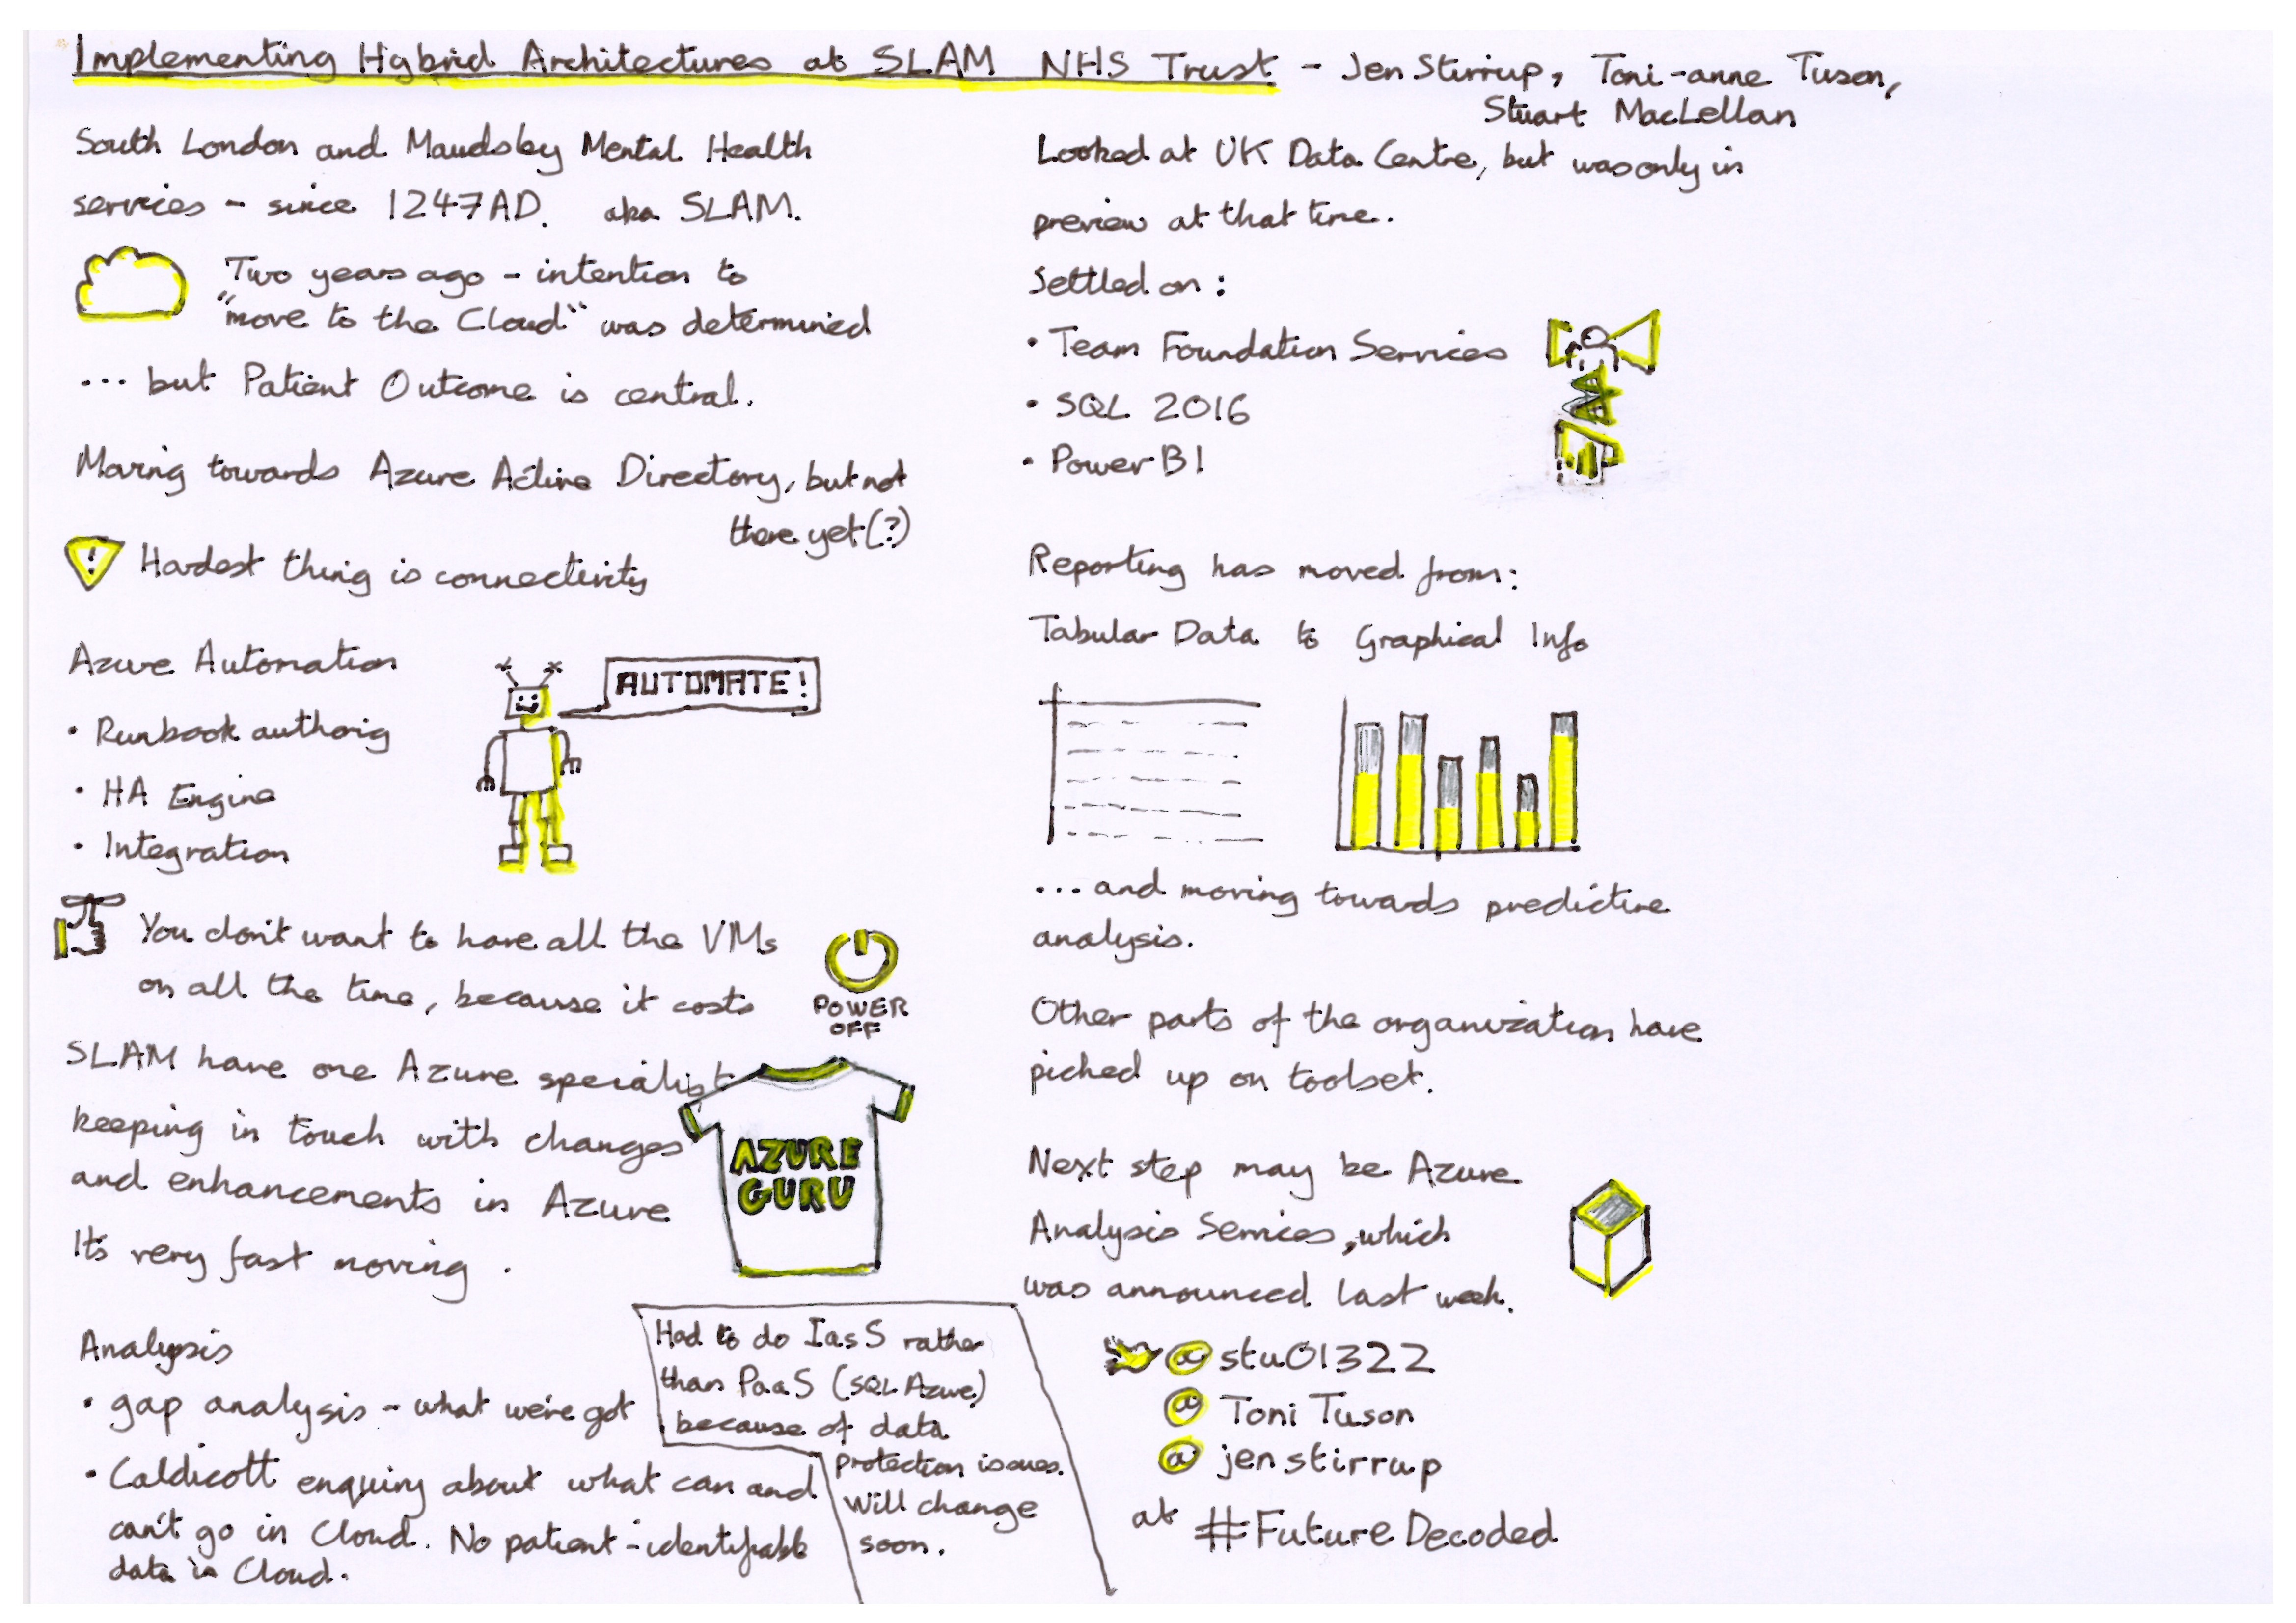 Implementing Hybrid Architectures at SLAM NHS Trust - Jen Stirrup, Toni-anne Tuson,
Stuart MacLellan
South London and Maudsley Mental Health
services - since 1247AD. aka SLAM.
Two years ago - intention to
"move to the Cloud" was determined
... but Patient Outcome is central.
Moving towards Azure Active Directory, but not
there yet (?)
! Hardest thing is connectivity
Azure Automation
AUTOMATE!
• Runbook authorig
• HA Engine
• Integration
You don't want to have all the VMs
on all the time, because it costs
POWER
OFF
SLAM have one Azure specialist
keeping in touch with changes
and enhancements in Azure
It's very fast moving.
AZURE
GURU
Analysis
• gap analysis - what we've got
• Caldicott enquiry about what can and
can't go in Cloud. No patient-identifiable
data in Cloud.
Had to do IaaS rather
than PaaS (SQL Azure)
because of data
protection issues.
Will change
soon.
Looked at UK Data Centre, but was only in
preview at that time.
Settled on:
• Team Foundation Services
• SQL 2016
• Power BI
Reporting has moved from:
Tabular Data to Graphical Info
... and moving towards predictive
analysis.
Other parts of the organization have
picked up on toolset.
Next step may be Azure
Analysis Services, which
was announced last week.
@stu01322
@ToniTuson
@jenstirrup
at #FutureDecoded